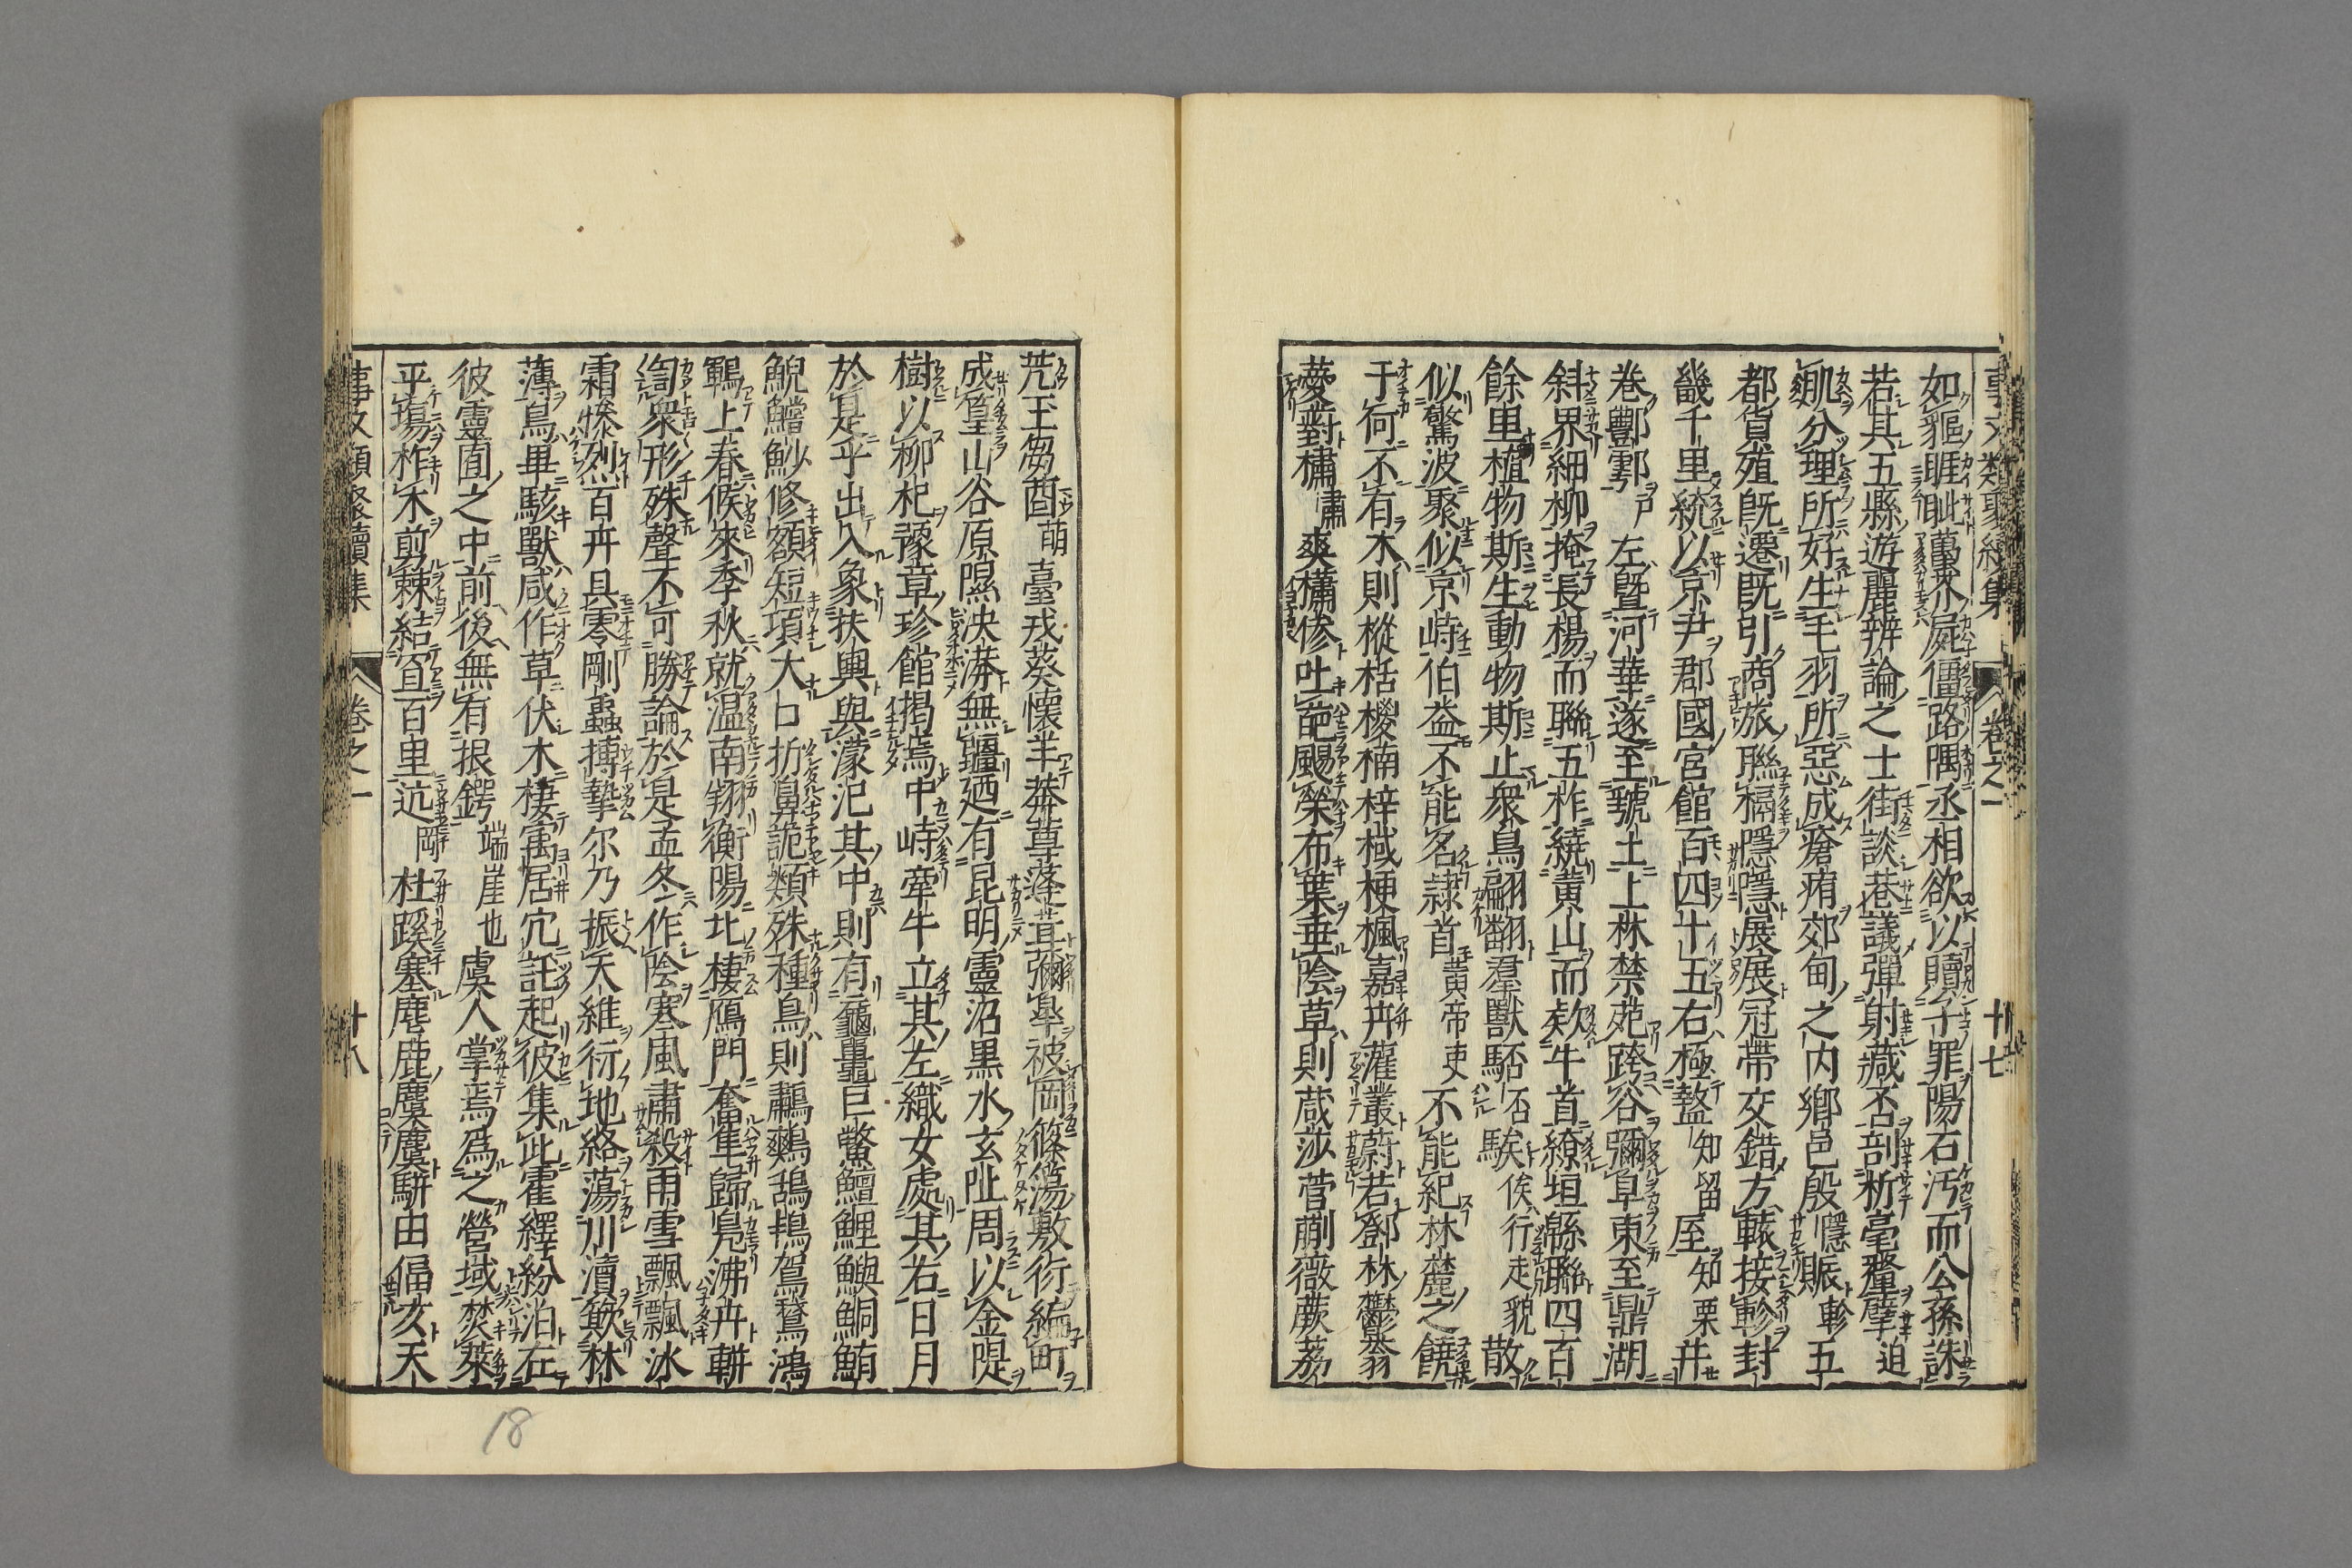 事文類聚續集 卷之一 十七
如貙睚眦蠆芥屍僵路隅丞相欲以贖子罪陽石汚而公孫誅
若其五縣遊麗辨論之士街談巷議彈射臧否剖析毫釐擘迫
肌分理所好生毛羽所惡成瘡痏郊甸之内鄉邑殷賑隱軫五
都貨殖旣遷旣引商旅聯槅隱隱展展冠帶交錯方轅接軫封
畿千里統以京尹郡國宮館百四十五右極盩知留厔知栗并
卷酆鄠戸左曁河華遂至虢土上林禁苑跨谷彌阜東至鼎湖
斜界細柳掩長楊而聯五柞繞黄山而欵牛首繚垣緜聯四百
餘里植物斯生動物斯止衆鳥翩翻羣獸駓否騃俟行走貌散
似驚波聚似京峙伯益不能名隷首黃帝吏不能紀林麓之饒
于何不有木則樅栝椶楠梓棫楩楓嘉卉灌叢蔚若鄧林鬱蓊
薆對橚肅爽櫹槮吐葩颺榮布葉垂陰草則葴莎菅蒯薇蕨荔
艽王芻莔萌臺戎葵懷羊苯䔿蓬茸彌皐被岡篠簜敷衍編町
成篁山谷原隰泱漭無疆廼有昆明靈沼黒水玄阯周以金隄
樹以柳杞豫章珍館揭焉中峙牽牛立其左織女處其右日月
於是乎出入象扶輿與濛汜其中則有黿鼉巨鱉鱣鯉鱮鮦鮪
鯢鱨魦修額短項大口折鼻詭類殊種鳥則鷫鷞鴰鴇鴐鵞鴻
鶤上春候來季秋就温南翔衡陽北棲鴈門奮隼歸鳧沸卉軿
訇衆形殊聲不可勝論於是孟冬作陰寒風肅殺雨雪飄飄冰
霜慘烈百卉具零剛蟲搏摯尓乃振天維衍地絡蕩川瀆簸林
薄鳥畢駭獸咸作草伏木棲寓居穴託起彼集此霍繹紛泊在
彼靈囿之中前後無有垠鍔端崖也虞人掌焉為之營域焚萊
平塲柞木剪棘結罝百里迒岡杜蹊塞麀鹿麌麌駢田偪仄天
事文類聚續集 卷之一 十八
18